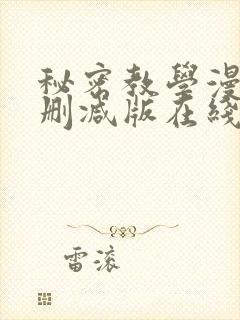 秘密教學漫
刪減版在綫
雷滚